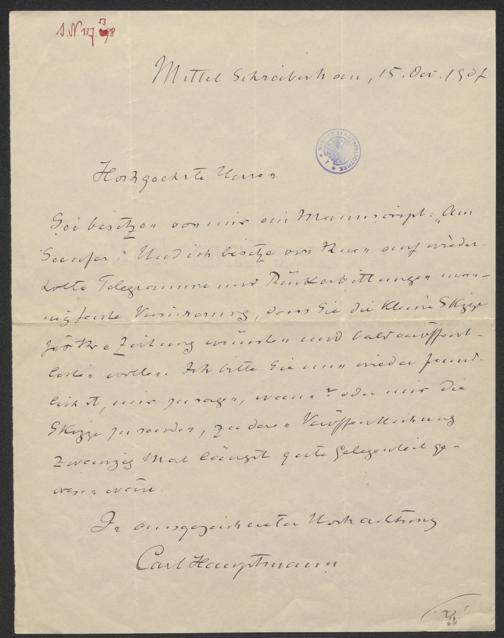 Mittel Schreiberhau, 15. Oct. 1907
Hochgeehrte Herren
Sie besitzen von mir ein Manuscript „Am
Seeufer“. Und ich besitze von Ihnen auf wieder-
holte Telegramme und Rückerbittungen man-
nigfache Versicherung, dass Sie die kleine Skizze
für Ihre Zeitung wünschen und bald veröffent-
lichen wollen. Ich bitte Sie nun wieder freund-
lichst, mir zu sagen, wann? oder mir die
Skizze zu senden, zu deren Veröffentlichung
zwanzig Mal längst gute Gelegenheit ge-
wesen wäre
In ausgezeichneter Hochachtung
Carl Hauptmann